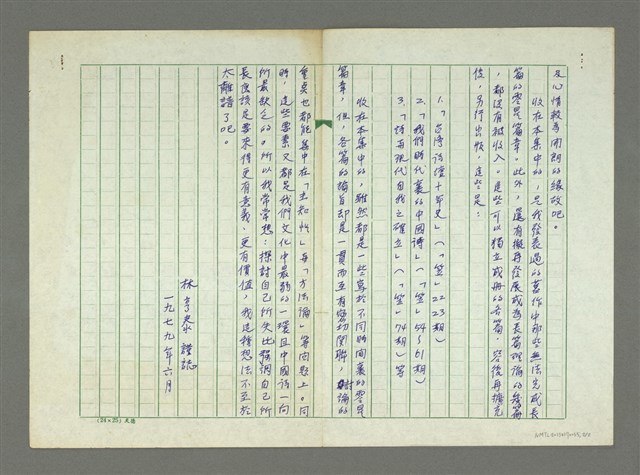 及心情較為開朗的緣故吧。
收在本集中的，是我發表過的著作中那些無法完成長
篇的零星篇章。此外，還有擬再發展成為長篇理論的幾篇
，都沒有被收入。這些可以獨立成冊的各篇，容後再擴充
後，另行出版，這些是：
1.「台灣詩壇十年史」（「笠」22、23期）
2.「我們時代裏的中國詩」（「笠」54～61期）
3.「詩與現代自我之確立」（「笠」74期）等
收在本集中的，雖然都是一些寫於不同時間裏的零星
篇章，但，各篇的論旨却是一貫而互有密切関聯，討論的
重奌也都能集中在「主知性」與「方法論」等問題上。同
時，這些要素又都是我們文化中最弱的一環且中國詩一向
所最缺乏的。所以我常常想：探討自己所失比強調自己所
長應該是要來得更有意義、更有價值，我這種想法不至於
太離譜了吧。
林亨泰 謹誌
一九七九年六月
(24×25)